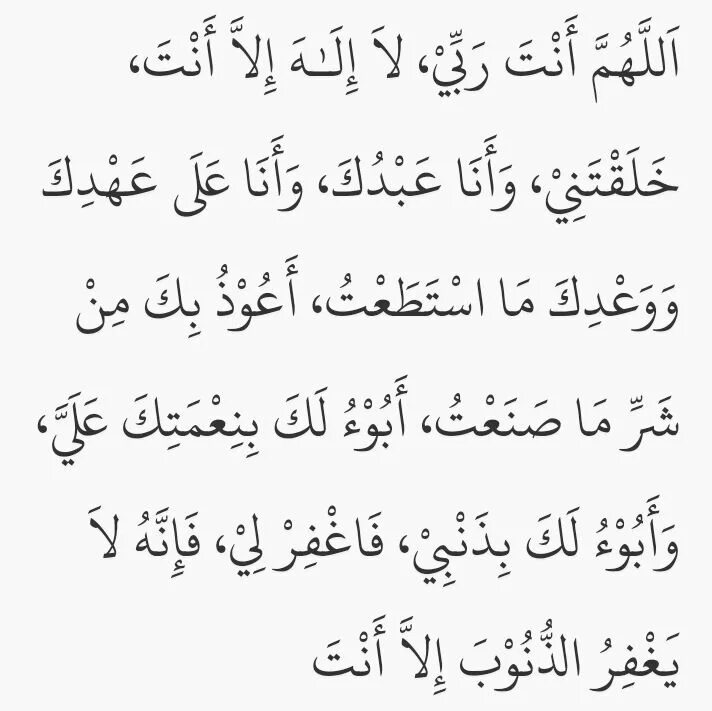 اَللَّهُمَّ أَنْتَ رَبِّيْ، لاَ إِلَـٰهَ إِلاَّ أَنْتَ،
خَلَقْتَنِيْ، وَأَنَا عَبْدُكَ، وَأَنَا عَلَى عَهْدِكَ
وَوَعْدِكَ مَا اسْتَطَعْتُ، أَعُوْذُ بِكَ مِنْ
شَرِّ مَا صَنَعْتُ، أَبُوْءُ لَكَ بِنِعْمَتِكَ عَلَيَّ،
وَأَبُوْءُ لَكَ بِذَنْبِيْ، فَاغْفِرْ لِيْ، فَإِنَّهُ لاَ
يَغْفِرُ الذُّنُوْبَ إِلاَّ أَنْتَ